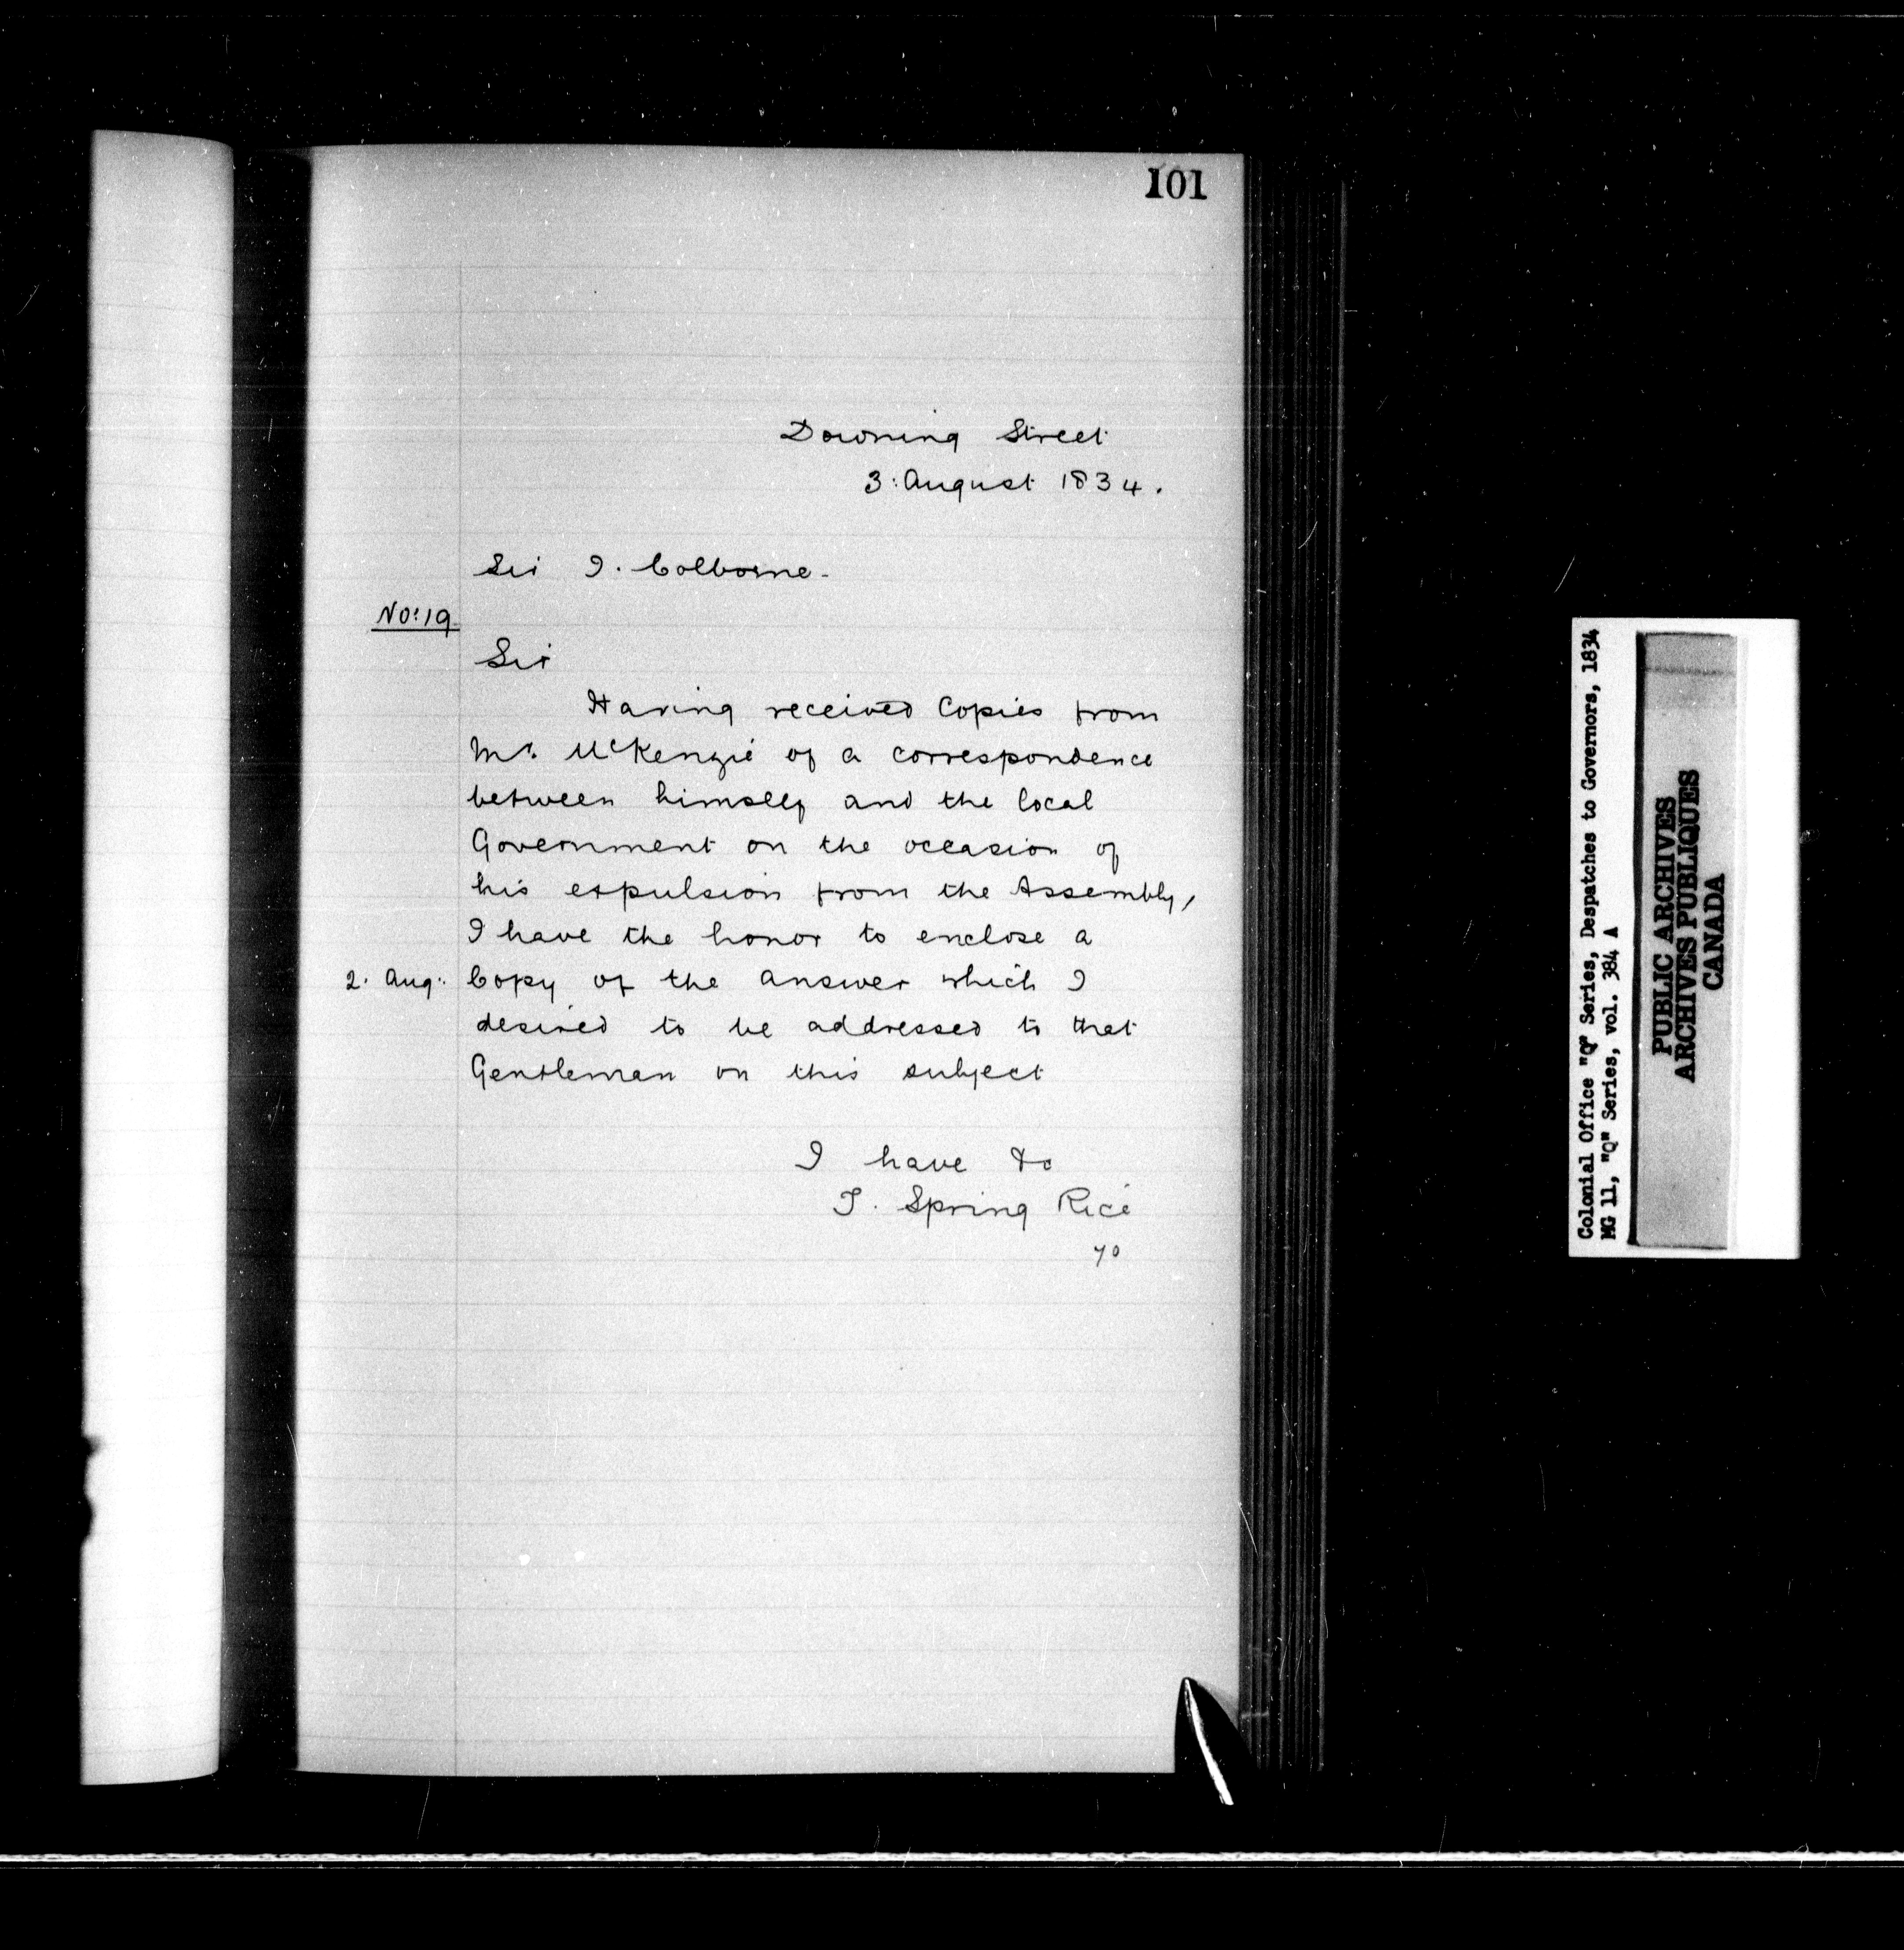 101
Downing Street
3: August 1834.
Sir J. Colborne.
No: 19
Sir
Having received Copies from
Mr. McKenzie of a correspondence
between himself and the local
Government on the occasion of
his expulsion from the Assembly,
I have the honor to enclose a
2. Aug: Copy of the answer which I
desired to be addressed to that
Gentleman on this subject
I have &c
T. Spring Rice
70
Colonial Office "Q" Series, Despatches to Governors, 1834
MG 11, "Q" Series, vol. 384 A
PUBLIC ARCHIVES
ARCHIVES PUBLIQUES
CANADA